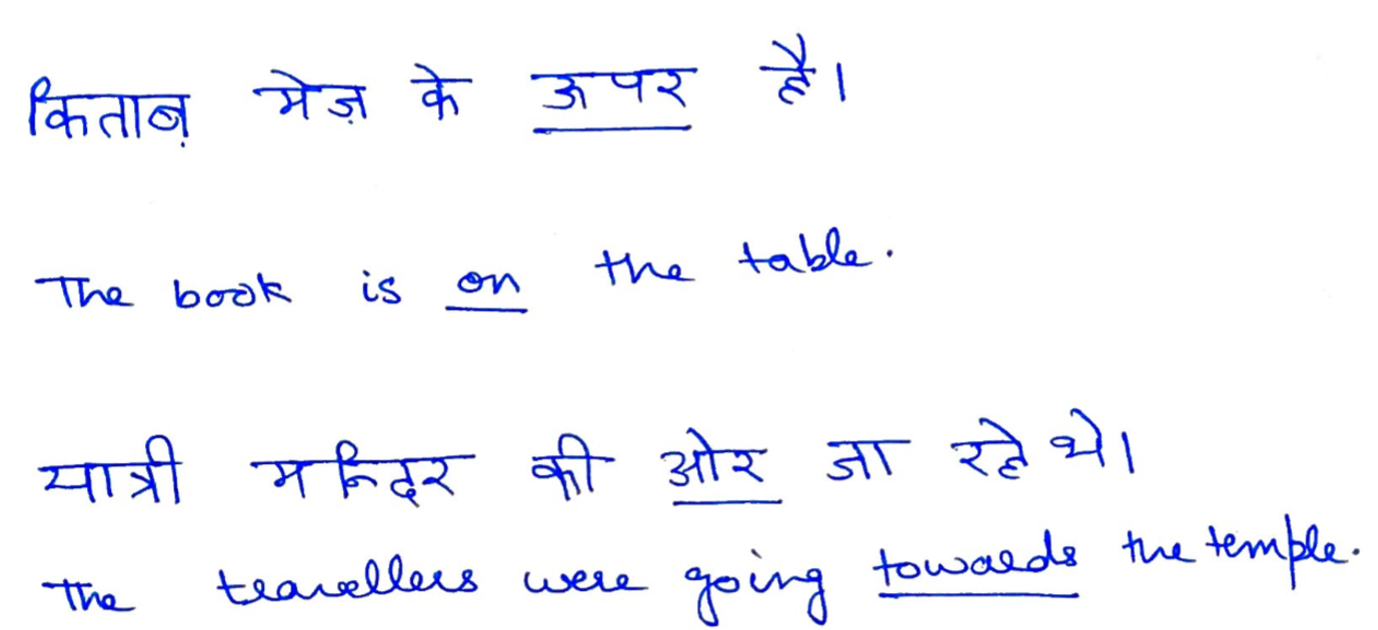 किताब़ मेज़ के ऊपर है।
The book is on the table.
यात्री मन्दिर की ओर जा रहे थे।
The travellers were going towards the temple.